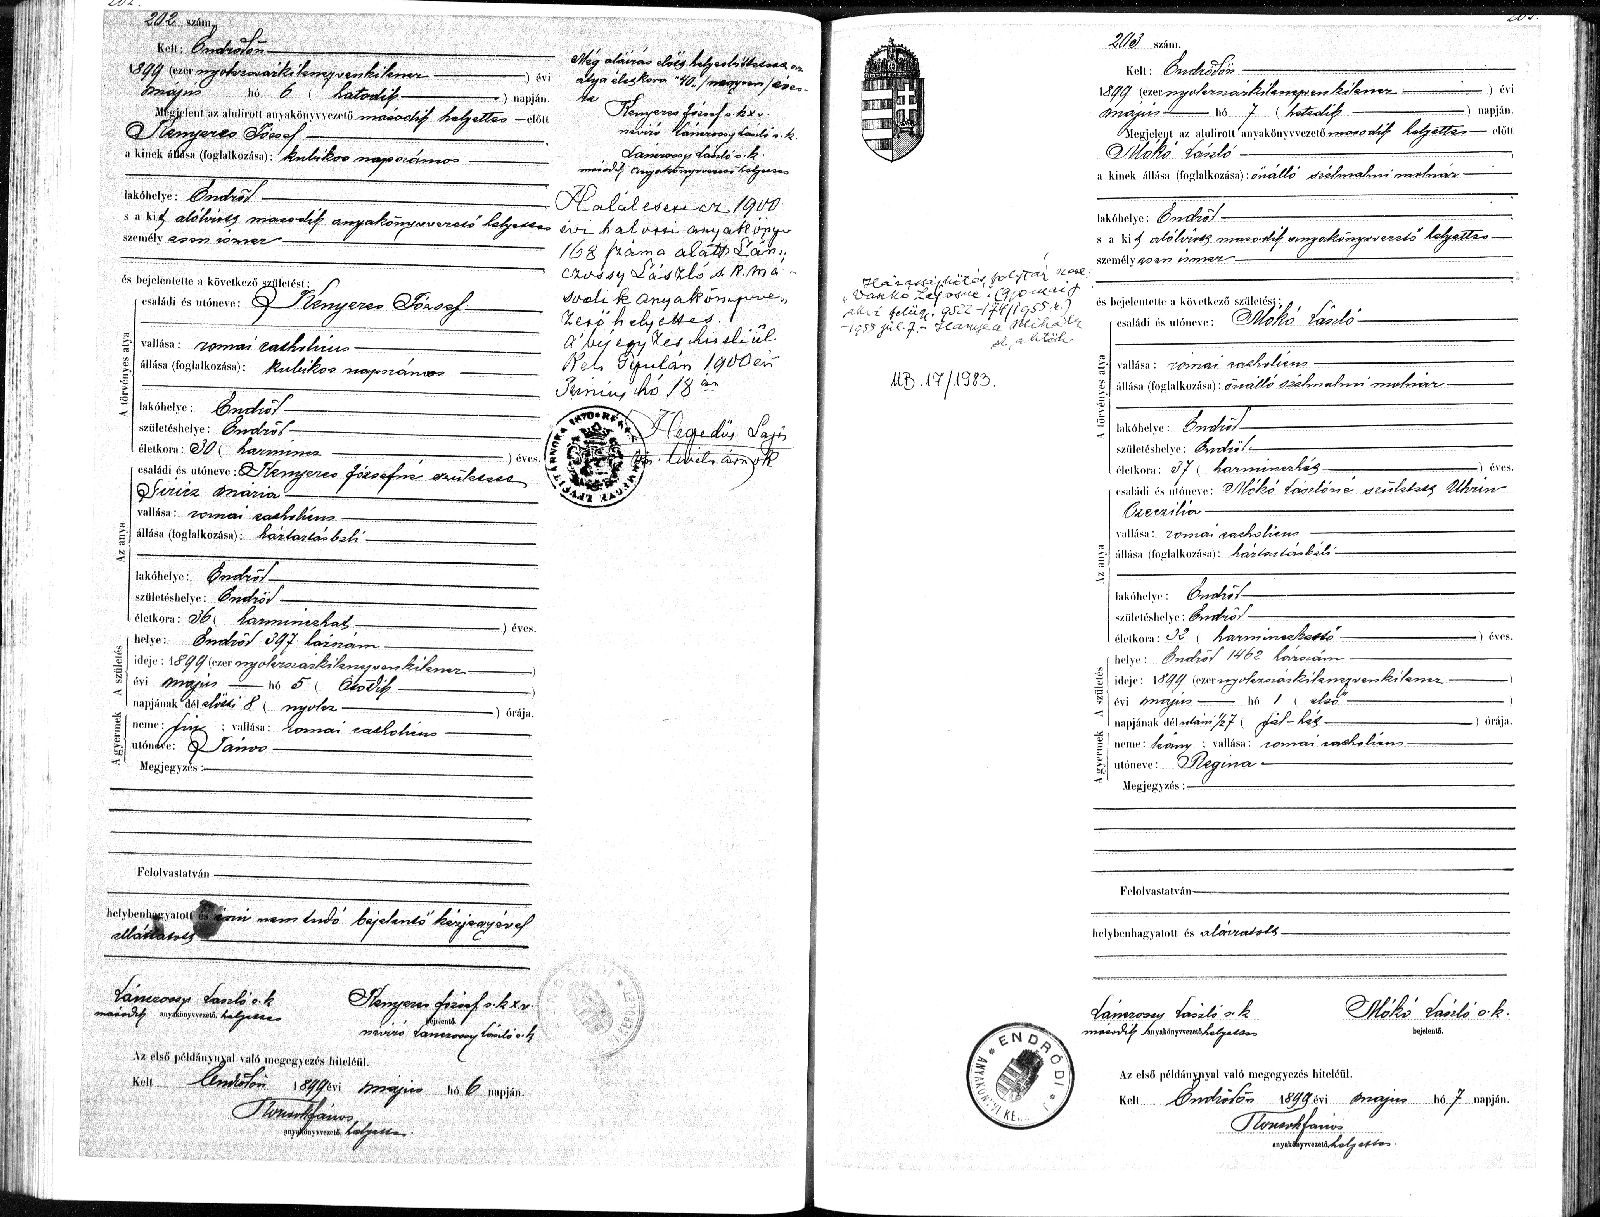 202 szám.
Kelt: Endrődön
1899 (ezer nyolczszázkilenczvenkilencz ) évi
május hó 6 ( hatodik ) napján.
Megjelent az alulirott anyakönyvvezető második helyettes előtt
Kenyeres József
a kinek állása (foglalkozása): kubikos napszámos
lakóhelye: Endrőd
s a kit alólirott második anyakönyvvezető helyettes
személyesen ismer
és bejelentette a következő születést:
A törvényes atya
családi és utóneve: Kenyeres József
vallása: romai catholicus
állása (foglalkozása): kubikos napszámos
lakóhelye: Endrőd
születéshelye: Endrőd
életkora: 30 ( harmincz ) éves.
Az anya
családi és utóneve: Kenyeres Józsefné született
Siricz Mária
vallása: romai catholicus
állása (foglalkozása): háztartásbeli
lakóhelye: Endrőd
születéshelye: Endrőd
életkora: 36 ( harminczhat ) éves.
A születés
helye: Endrőd 397 házszám
ideje: 1899 (ezer nyolczszázkilenczvenkilencz )
évi május hó 5 ( ötödik )
napjának dél előtti 8 ( nyolcz ) órája.
A gyermek
neme: fiú ; vallása: romai catholicus
utóneve: János
Megjegyzés:
Felolvastatván
helybenhagyatott és irni nem tudó bejelentő kézjegyével
elláttatott
Lánczossy László s.k. Kenyeres József s.k. x v.
második anyakönyvvezető helyettes bejelentő.
névíró Lánczossy László s.k.
Az első példánynyal való megegyezés hiteléül.
Kelt Endrődön 1899 évi május hó 6 napján.
János
anyakönyvvezető helyettes.
Még aláírás előtt helyesbíttetett az
atya életkora "40"/negyven/éves-
re
Kenyeres József s.k. x v.
névíró Lánczossy László s.k.
Lánczossy László s.k.
második anyakönyvvezető helyettes
Halálesete az 1900
évi halotti anyakönyv
168 száma alatt Lán-
czossy László s.k. má-
sodik anyakönyvve-
zető helyettes.
A bejegyzés hiteléül.
Kelt Gyulán 1900 évi
Junius hó 18 án
Hegedüs Lajos
203 szám.
Kelt: Endrődön
1899 (ezer nyolczszázkilenczvenkilencz ) évi
május hó 7 ( hetedik ) napján.
Megjelent az alulirott anyakönyvvezető második helyettes előtt
Mókó László
a kinek állása (foglalkozása): önálló szélmalmi molnár
lakóhelye: Endrőd
s a kit alólirott második anyakönyvvezető helyettes
személyesen ismer
és bejelentette a következő születést:
A törvényes atya
családi és utóneve: Mókó László
vallása: romai catholicus
állása (foglalkozása): önálló szélmalmi molnár
lakóhelye: Endrőd
születéshelye: Endrőd
életkora: 37 ( harminczhét ) éves.
Az anya
családi és utóneve: Mókó Lászlóné született Uhrin
Czeczilia
vallása: romai catholicus
állása (foglalkozása): háztartásbeli
lakóhelye: Endrőd
születéshelye: Endrőd
életkora: 32 ( harminczkettő ) éves.
A születés
helye: Endrőd 1462 házszám
ideje: 1899 (ezer nyolczszázkilenczvenkilencz )
évi május hó 1 ( első )
napjának dél utáni 1/27 ( fél-hét ) órája.
A gyermek
neme: leány ; vallása: romai catholicus
utóneve: Regina
Megjegyzés:
Felolvastatván
helybenhagyatott és aláiratott
Lánczossy László s.k. Mókó László s.k.
második anyakönyvvezető helyettes bejelentő.
Az első példánynyal való megegyezés hiteléül.
Kelt Endrődön 1899 évi május hó 7 napján.
János
anyakönyvvezető helyettes.
MB. 17/1983.
ENDRŐDI